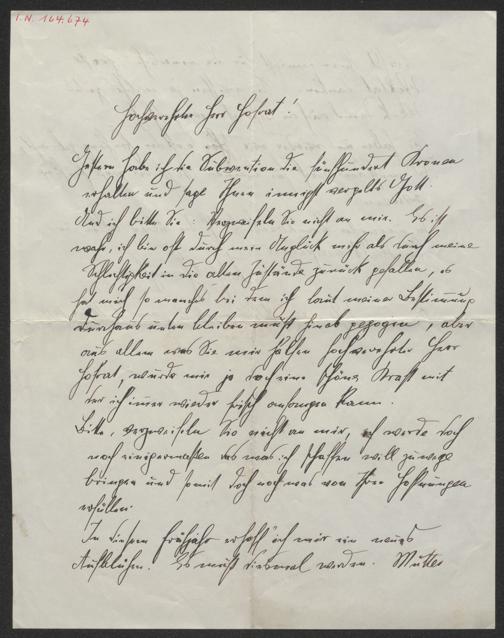 I.N. 164.674
Hochverehrter Herr Hofrat!
Gestern habe ich die Subvention die fünfhundert Kronen
erhalten und sage Ihnen innigst vergelts Gott.
Und ich bitte Sie: Verzweifeln Sie nicht an mir. Es ist
wahr, ich bin oft durch mein Unglück mehr als durch meine
Schlechtigkeit in die alten Zustände zurück gefallen, es
hat mich so manches bei dem ich laut meiner Bestimmung
durchaus unten bleiben muß hinab gezogen, aber
aus allem was Sie mir halfen hochverehrter Herr
Hofrat, wurde mir ja doch eine schöne Kraft mit
der ich immer wieder frisch anfangen kann.
Bitte, verzweifeln Sie nicht an mir, ich werde doch
noch einigermaßen das was ich schaffen will zuwege
bringen und somit doch noch was von Ihren Hoffnungen
erfüllen.
In diesem Frühjahr erhoff ich mir ein neues
Aufblühen. Es muß diesmal werden. Mutter